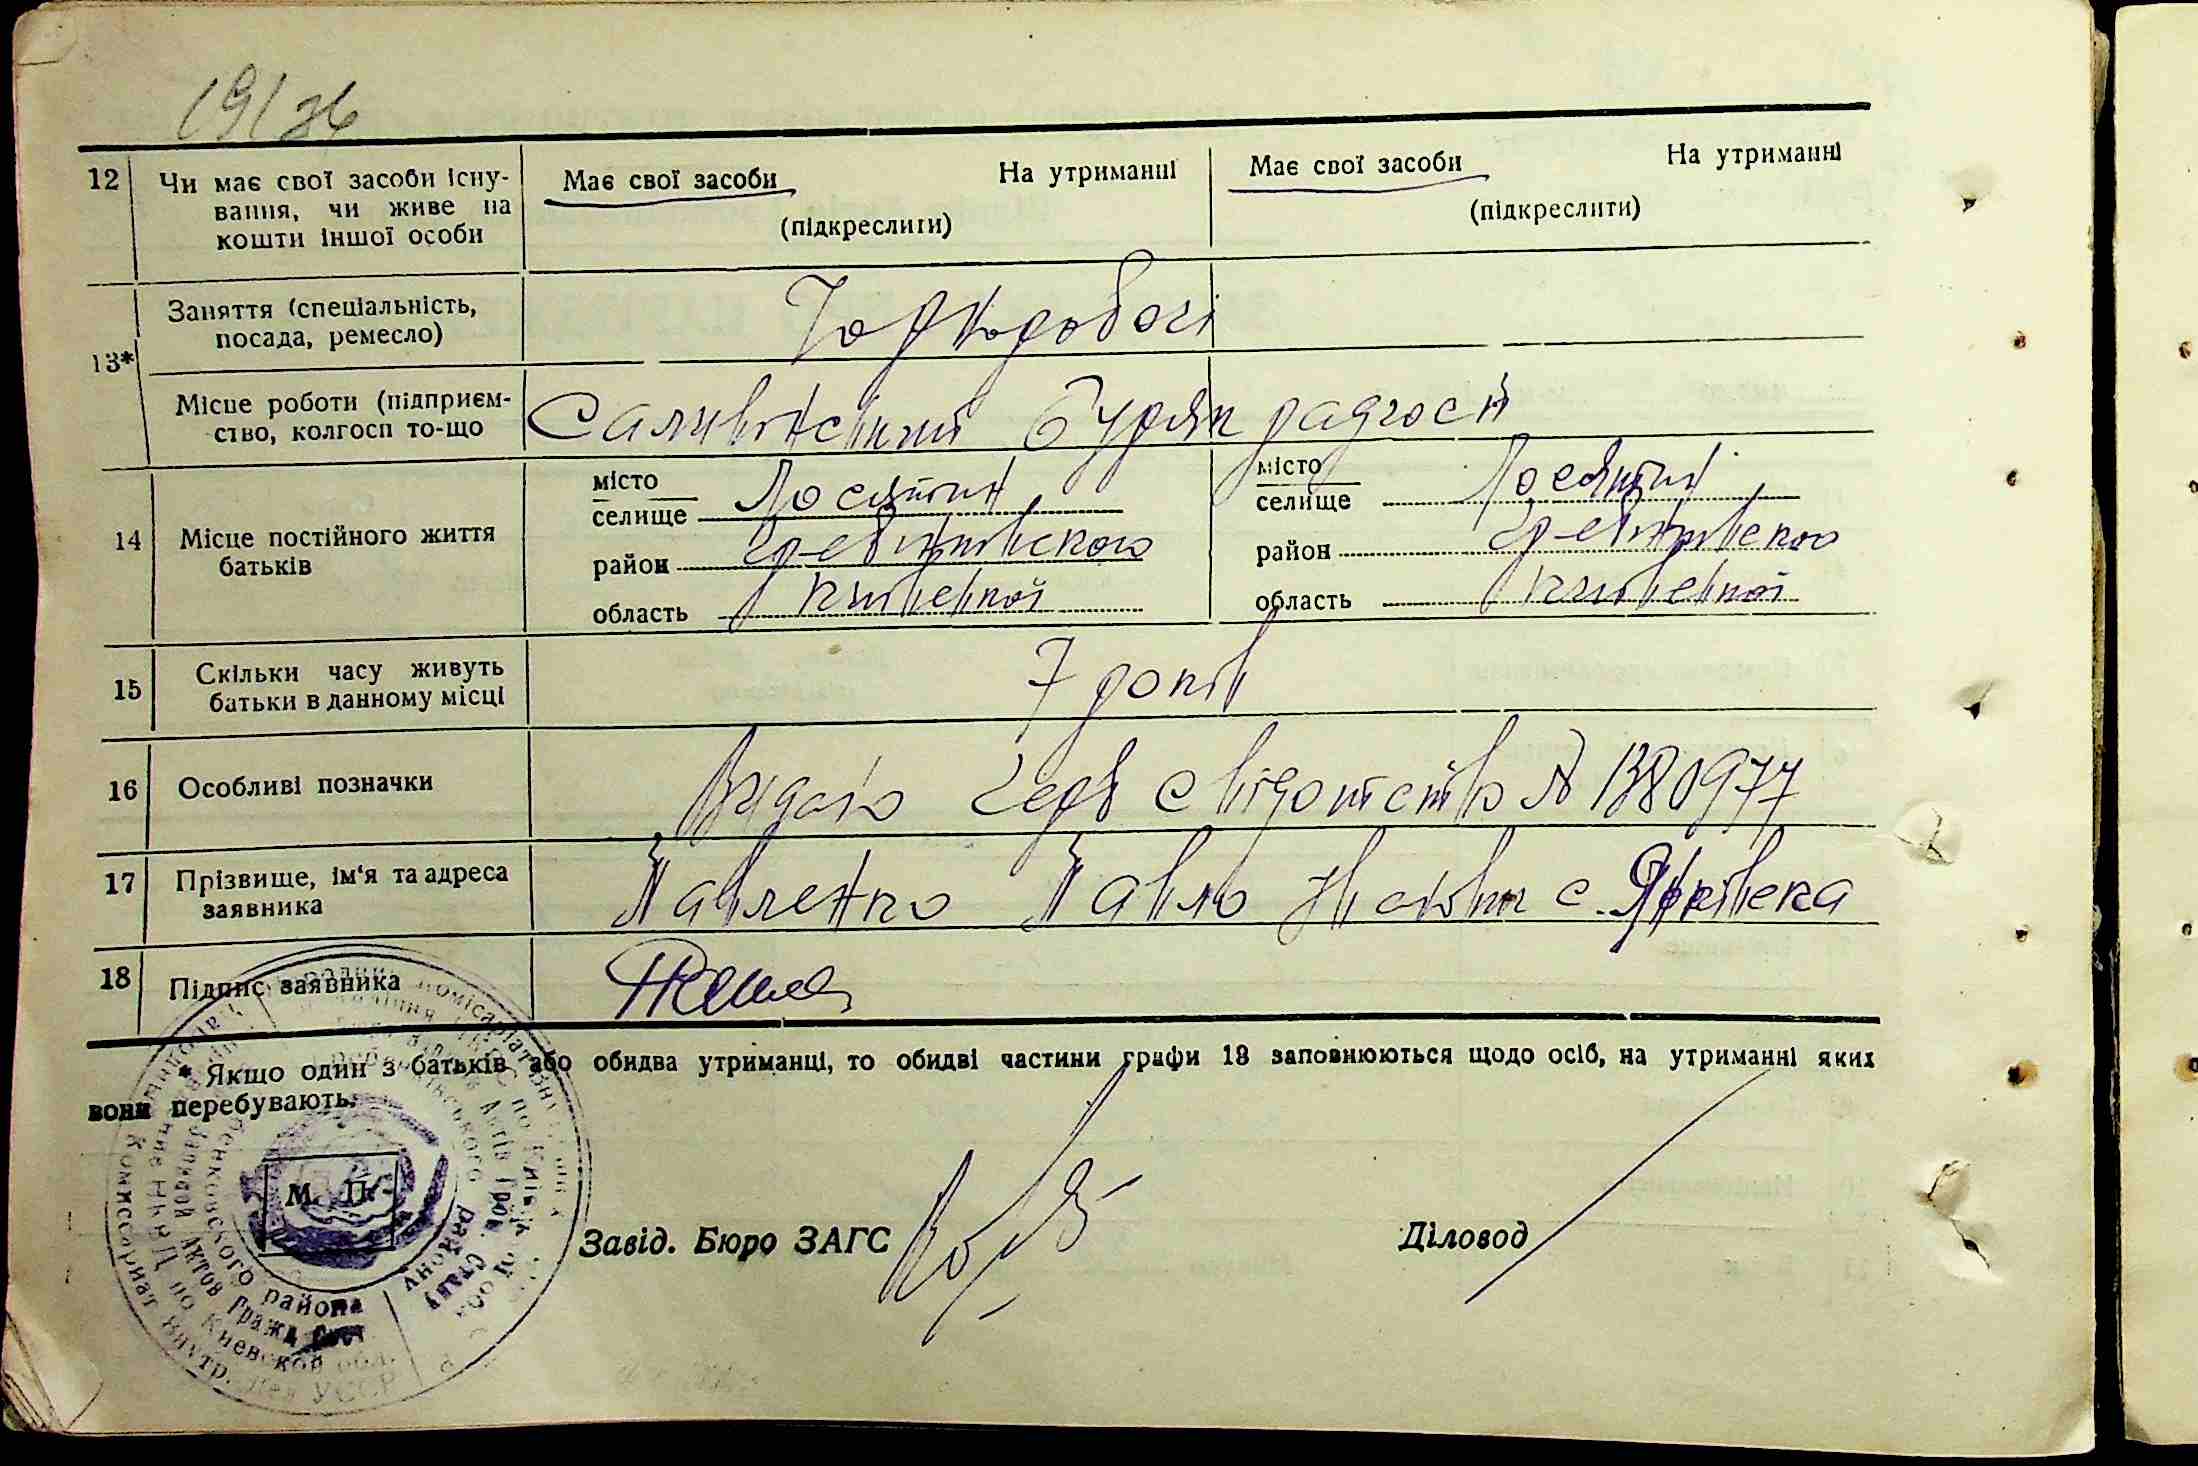 19/36
12 Чи має свої засоби існу-
вання, чи живе на
кошти іншої особи
Має свої засоби На утриманні
(підкреслити)
Має свої засоби На утриманні
(підкреслити)
13* Заняття (спеціальність,
посада, ремесло)
Чорноробочі
Місце роботи (підприєм-
ство, колгосп то-що
Саливінський буряк радгосп
14 Місце постійного життя
батьків
місто
селище Лосятин
район Гребінківского
область Київської
місто
селище Лосятин
район Гребінківского
область Київської
15 Скільки часу живуть
батьки в данному місці
7 років
16 Особливі позначки
Видано серв свідотство № 1380977
17 Прізвище, ім'я та адреса
заявника
Павленко Павло с.
18 Підпис заявника
* Якщо один з батьків або обидва утриманці, то обидві частини графи 13 заповнюються щодо осіб, на утриманні яких
вони перебувають.
М. П.
Завід. Бюро ЗАГС
Діловод